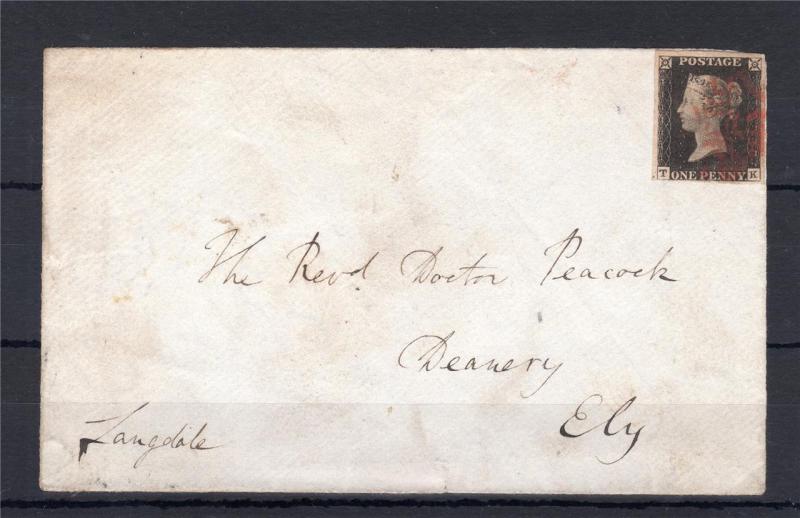 POSTAGE
T ONE PENNY K
The Revd Doctor Peacock
Deanery
Ely
Langdale